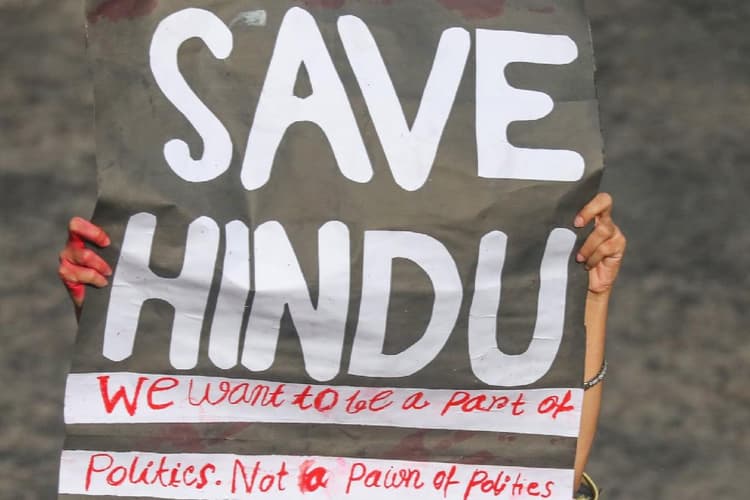 SAVE
HINDU
We want to be a part of
Politics. Not a Pawn of Polities